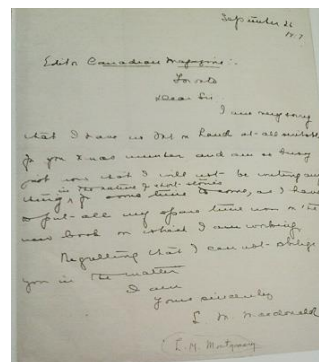 September 26
Editor Canadian Magazine:.
Toronto
Dear Sir
I am very sorry
that I have no MS on hand at all suitable
for your Xmas number and am so busy
just now that I will not be writing any
thing in the nature of short stories for some time to come, as I have
to put all my spare time now on the
new book on which I am working
Regretting that I cannot oblige
you in the matter
I am
Yours sincerely
L. M. Macdonald
(L. M. Montgomery